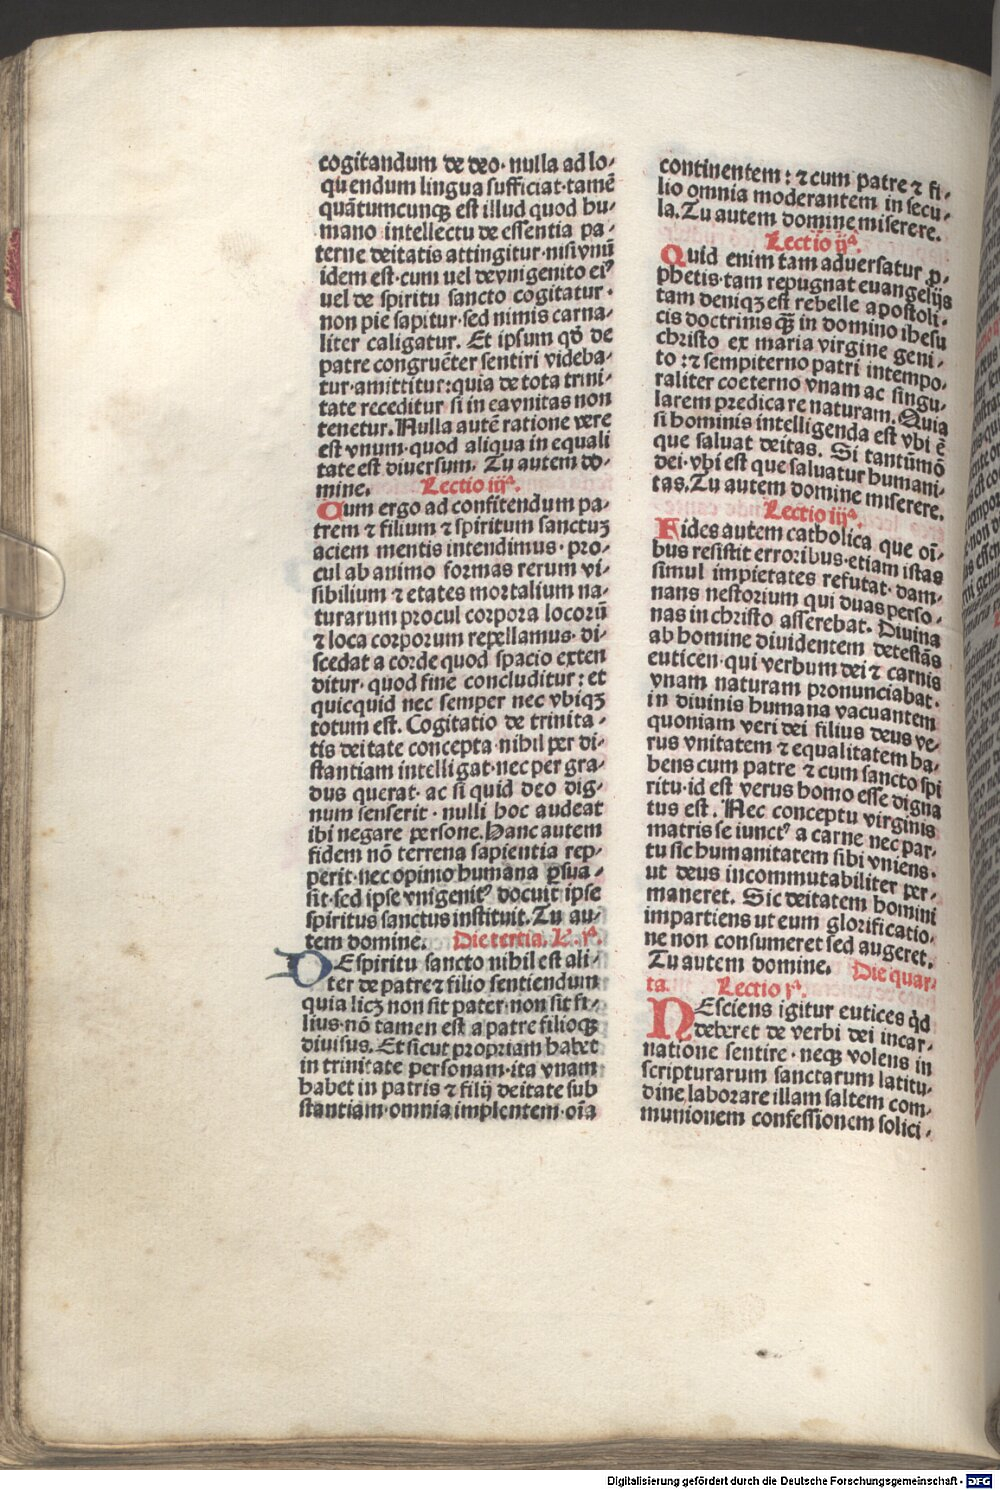 cogitandum de deo· nulla ad lo⸗
quendum lingua sufficiat·tamē
quātumcunqꝫ est illud quod hu⸗
mano intellectu de essentia pa⸗
terne deitatis attingitur·nisi vnū
idem est·cum uel de vnigenito eiꝰ
uel de spiritu sancto cogitatur·
non pie sapitur·sed nimis carna⸗
liter caligatur. Et ipsum qđ de
patre congruēter sentiri videba⸗
tur·amittitur:quia de tota trini⸗
tate receditur si in ea vnitas non
tenetur. Nulla autē ratione vere
est vnum·quod aliqua in equali
tate est diuersum. Tu autem do⸗
mine. Lectio iijª.
Cum ergo ad confitendum pa⸗
trem ⁊ filium ⁊ spiritum sanctuꝫ
aciem mentis intendimus· pro⸗
cul ab animo formas rerum vi⸗
sibilium ⁊ etates mortalium na⸗
turarum procul corpora locorū
⁊ loca corporum repellamus· di⸗
scedat a corde quod spacio exten
ditur· quod fine concluditur: et
quicquid nec semper nec vbiqꝫ
totum est. Cogitatio de trinita⸗
tis deitate concepta·nihil per di⸗
stantiam intelligat·nec per gra⸗
dus querat· ac si quid deo dig⸗
num senserit· nulli hoc audeat
ibi negare persone. Hanc autem
fidem nō terrena sapientia rep⸗
perit·nec opinio humana ꝑsua⸗
sit·sed ipse vnigenitꝰ docuit ipse
spiritus sanctus instituit. Tu au⸗
tem domine. Die tertia. L. iª.
DE spiritu sancto nihil est ali⸗
ter de patre ⁊ filio sentiendum
quia licꝫ non sit pater·non sit fi⸗
lius·nō tamen est a patre filioqꝫ
diuisus. Et sicut propriam habet
in trinitate personam·ita vnam
habet in patris ⁊ filij deitate sub
stantiam·omnia implentem·oīa
continentem: ⁊ cum patre ⁊ fi⸗
lio omnia moderantem in secu⸗
la. Tu autem domine miserere.
Lectio ijª.
Quid enim tam aduersatur ꝓ⸗
phetis·tam repugnat euangelijs
tam deniqꝫ est rebelle apostoli⸗
cis doctrinis qꝫ̄ in domino ihesu
christo ex maria virgine geni⸗
to: ⁊ sempiterno patri intempo⸗
raliter coeterno vnam ac singu⸗
larem predicare naturam. Quia
si hominis intelligenda est vbi ē
que saluat deitas. Si tantūmō
dei·vbi est que saluatur humani⸗
tas. Tu autem domine miserere.
Lectio iijª.
Fides autem catholica que oī⸗
bus resistit erroribus·etiam istas
simul impietates refutat· dam⸗
nans nestorium qui duas perso⸗
nas in christo asserebat. Diuina
ab homine diuidentem detestās
euticen·qui verbum dei ⁊ carnis
vnam naturam pronunciabat·
in diuinis humana vacuantem
quoniam veri dei filius deus ve⸗
rus vnitatem ⁊ equalitatem ha⸗
bens cum patre ⁊ cum sancto spi
ritu·id est verus homo esse digna
tus est. Nec conceptu virginis
matris se iunctꝰ a carne nec par⸗
tu sic humanitatem sibi vniens·
ut deus incommutabiliter per⸗
maneret. Sic deitatem homini
impartiens ut eum glorificatio⸗
ne non consumeret sed augeret.
Tu autem domine. Die quar⸗
ta. Lectio iª.
NEsciens igitur eutices qd̄
deberet de verbi dei incar⸗
natione sentire· neqꝫ volens in
scripturarum sanctarum latitu⸗
dine laborare illam saltem com⸗
munionem confessionem solici⸗
Digitalisierung gefördert durch die Deutsche Forschungsgemeinschaft - DFG